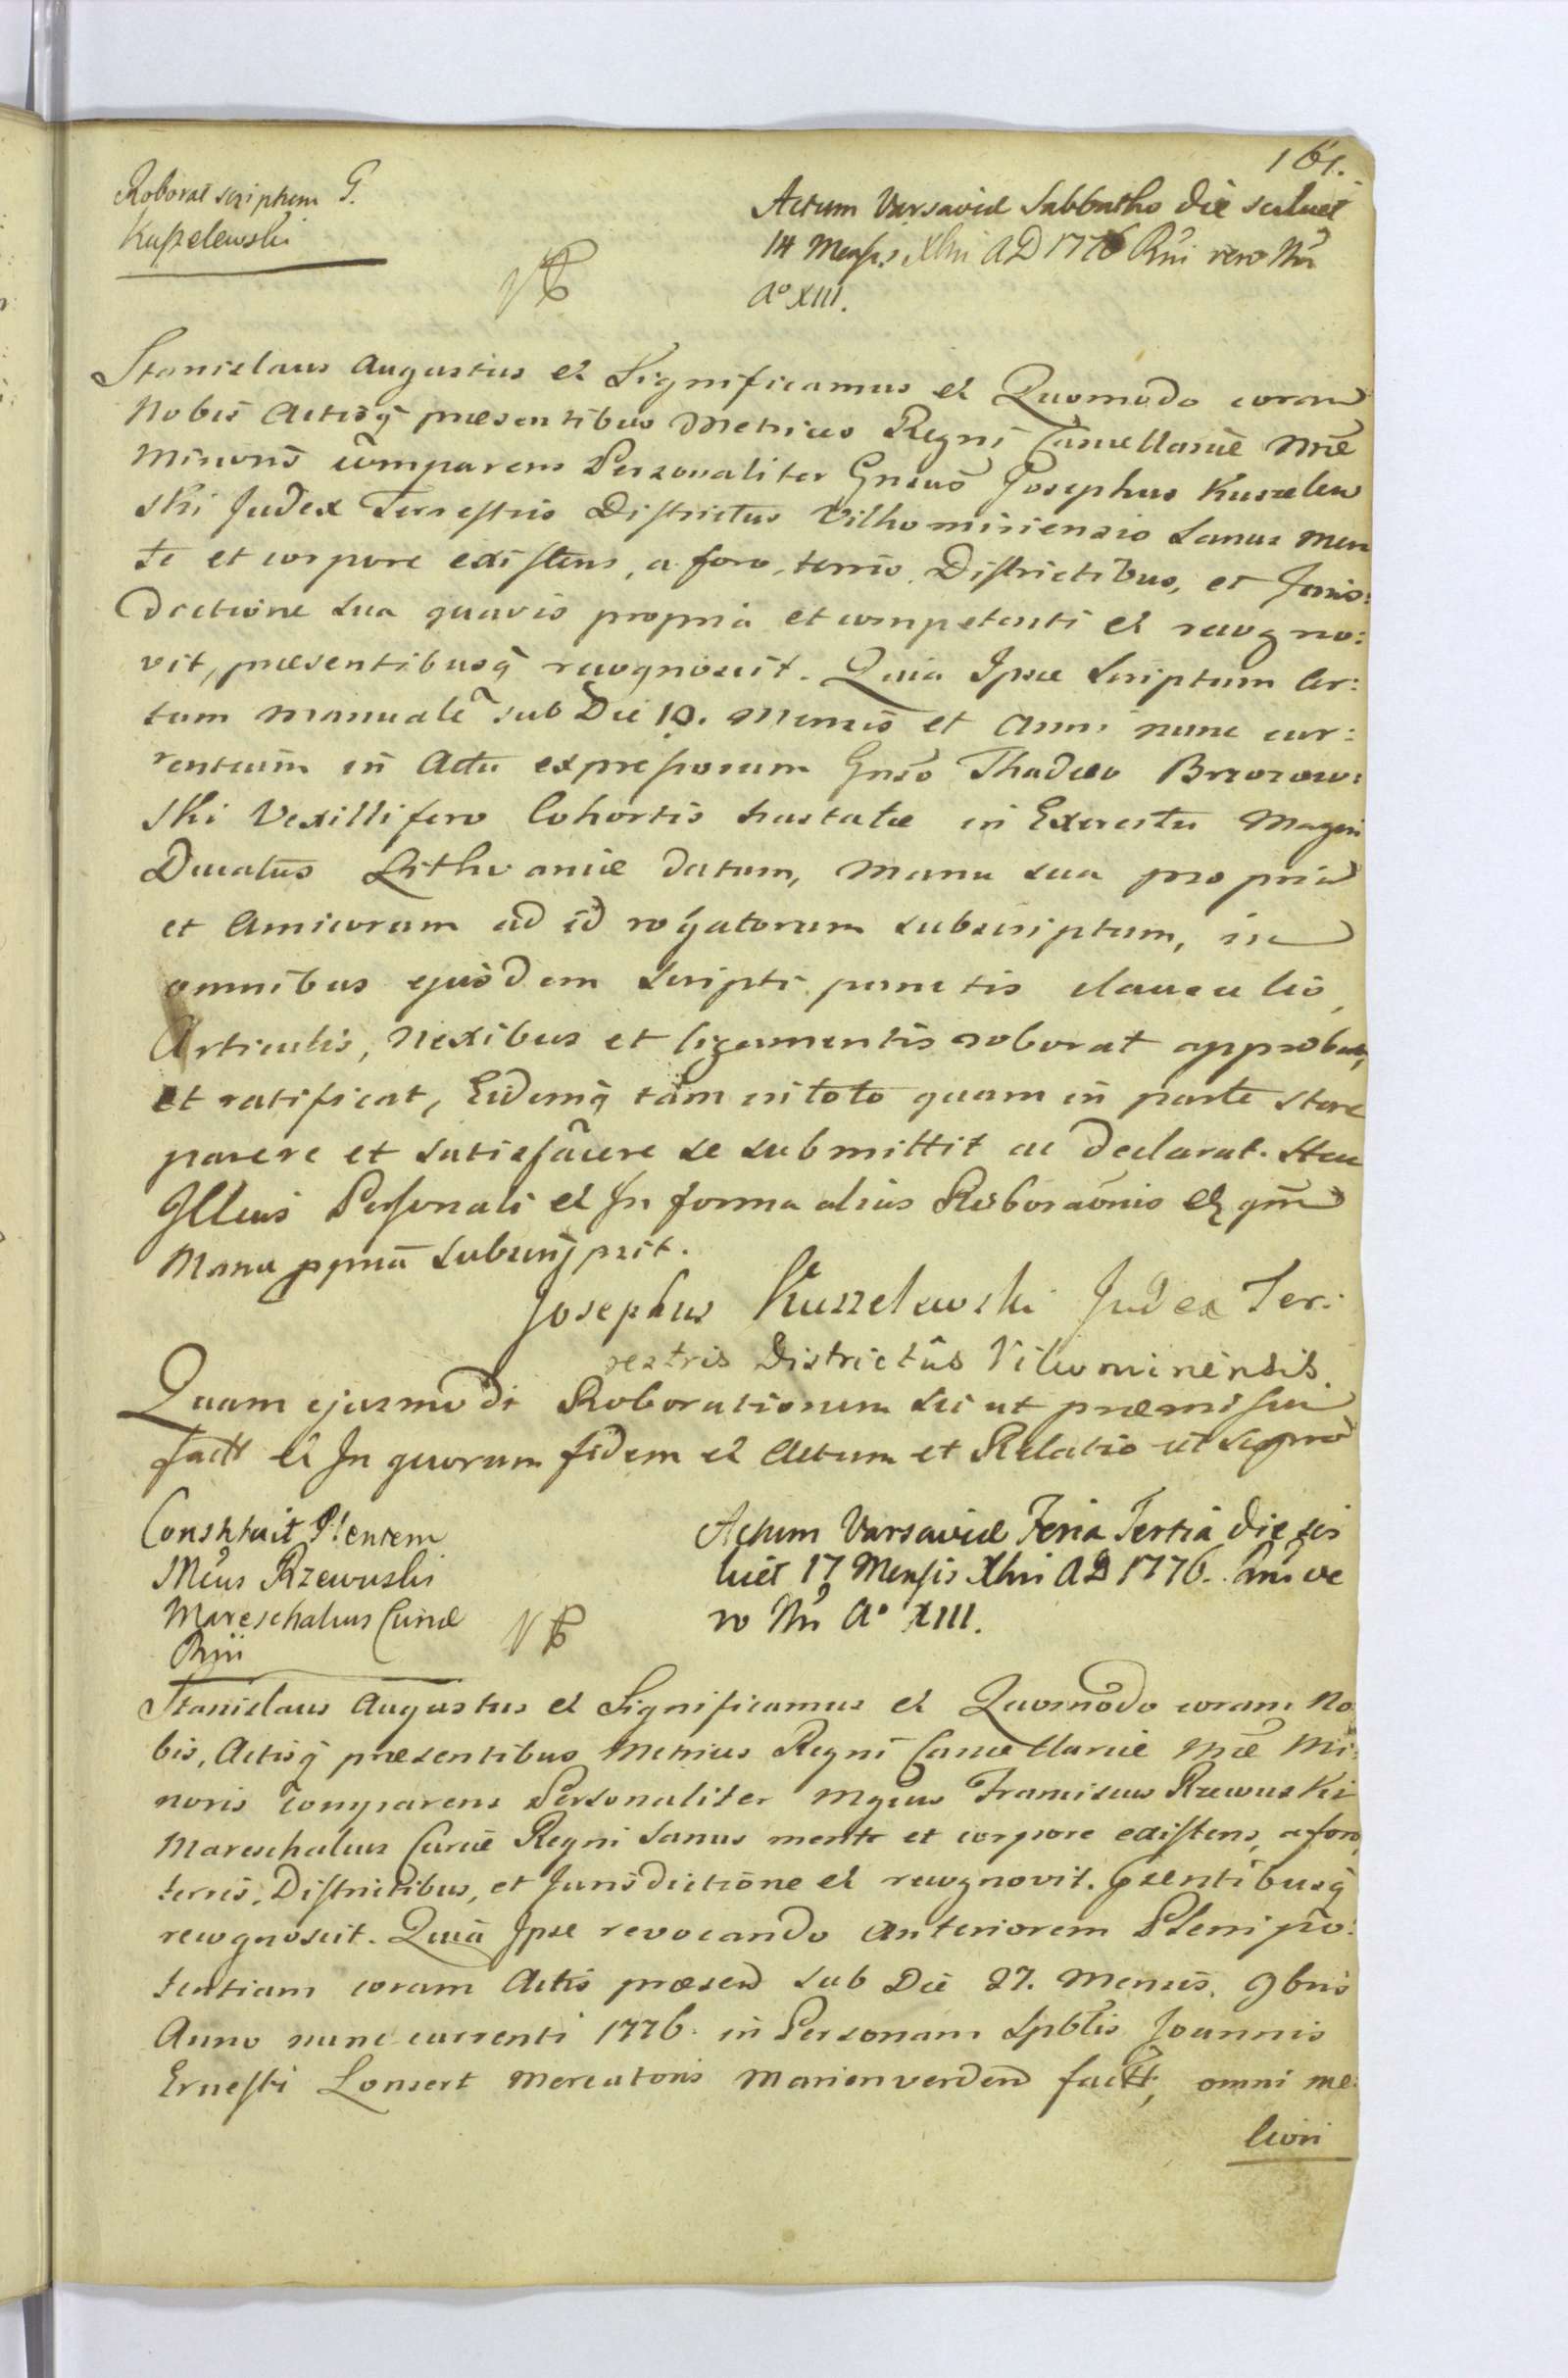 161.
Roborat scriptum G.
Kuszelewski
Actum Varsaviæ Sabbatho die scilicet
14 Mensis Xbris AD 1776 Rni vero Nri
A° XIII.
Stanislaus Augustus et Significamus et Quomodo coram
Nobis Actisq præsentibus Metrices Regni Cancellariæ Nræ
Minoris comparens Personaliter Gnsus Josephus Kuszelew
ski Judex Terrestris Districtus Vilkomiriensis Sanus men
te et corpore existens, a foro, terris, Districtibus, et Juris:
dictione sua quavis propria et competenti et recogno:
vit, præsentibusq recognoscit. Quia Ipse Scriptum Cer:
tum manuale sub Die 10. Mensis et Anni nunc cur:
rentium in Actu expressorum Gnso Thadæo Brzozow:
ski Vexillifero Cohortis hastatæ in Exercitu Magni
Ducatus Lithvaniæ datum, manu sua propria
et Amicorum ad id rogatorum subscriptum, in
omnibus ejusdem scripti punctis clausulis,
Articulis, Nexibus et ligamentis roborat approbat,
et ratificat, Eidemq tam in toto quam in parte stare
parere et satisfacere se submittit ac declarat. Stan
Illius Personali et In forma alias Roboraonis et qm
Manu ppria subscripsit.
Josephus Kuszelewski Judex Ter:
restris Districtûs Vilkominensis.
Quam ejusmodi Roborationem sic ut præmissum
factt et In quorum fidem et Actum et Relatio ut supra
Constituit Pltentem
Mcus Rzewuski
Mareschalus Curiæ
Rni
Actum Varsaviæ Feria Tertia die sci
licet 17 Mensis Xbris AD 1776. Rni ve
ro Nri A° XIII.
Stanislaus Augustus et Significamus et Quomodo coram No
bis, Actisq præsentibus Metrices Regni Cancellariæ Nræ Mi:
noris comparens Personaliter Mgcus Franciscus Rzewuski
Mareschalus Curiæ Regni Sanus mente et corpore existens, a foro,
terris, Districtibus, et Jurisdictione et recognovit. Psentibusq
recognoscit. Quia Ipse revocando Anteriorem Plenipo:
tentiam coram Actis præsen sub Die 27. Mensis 9bris
Anno nunc currenti 1776 in Personam Spblis Joannis
Ernesti Lonsert Mercatoris Marienverden factt, omni me:
liori